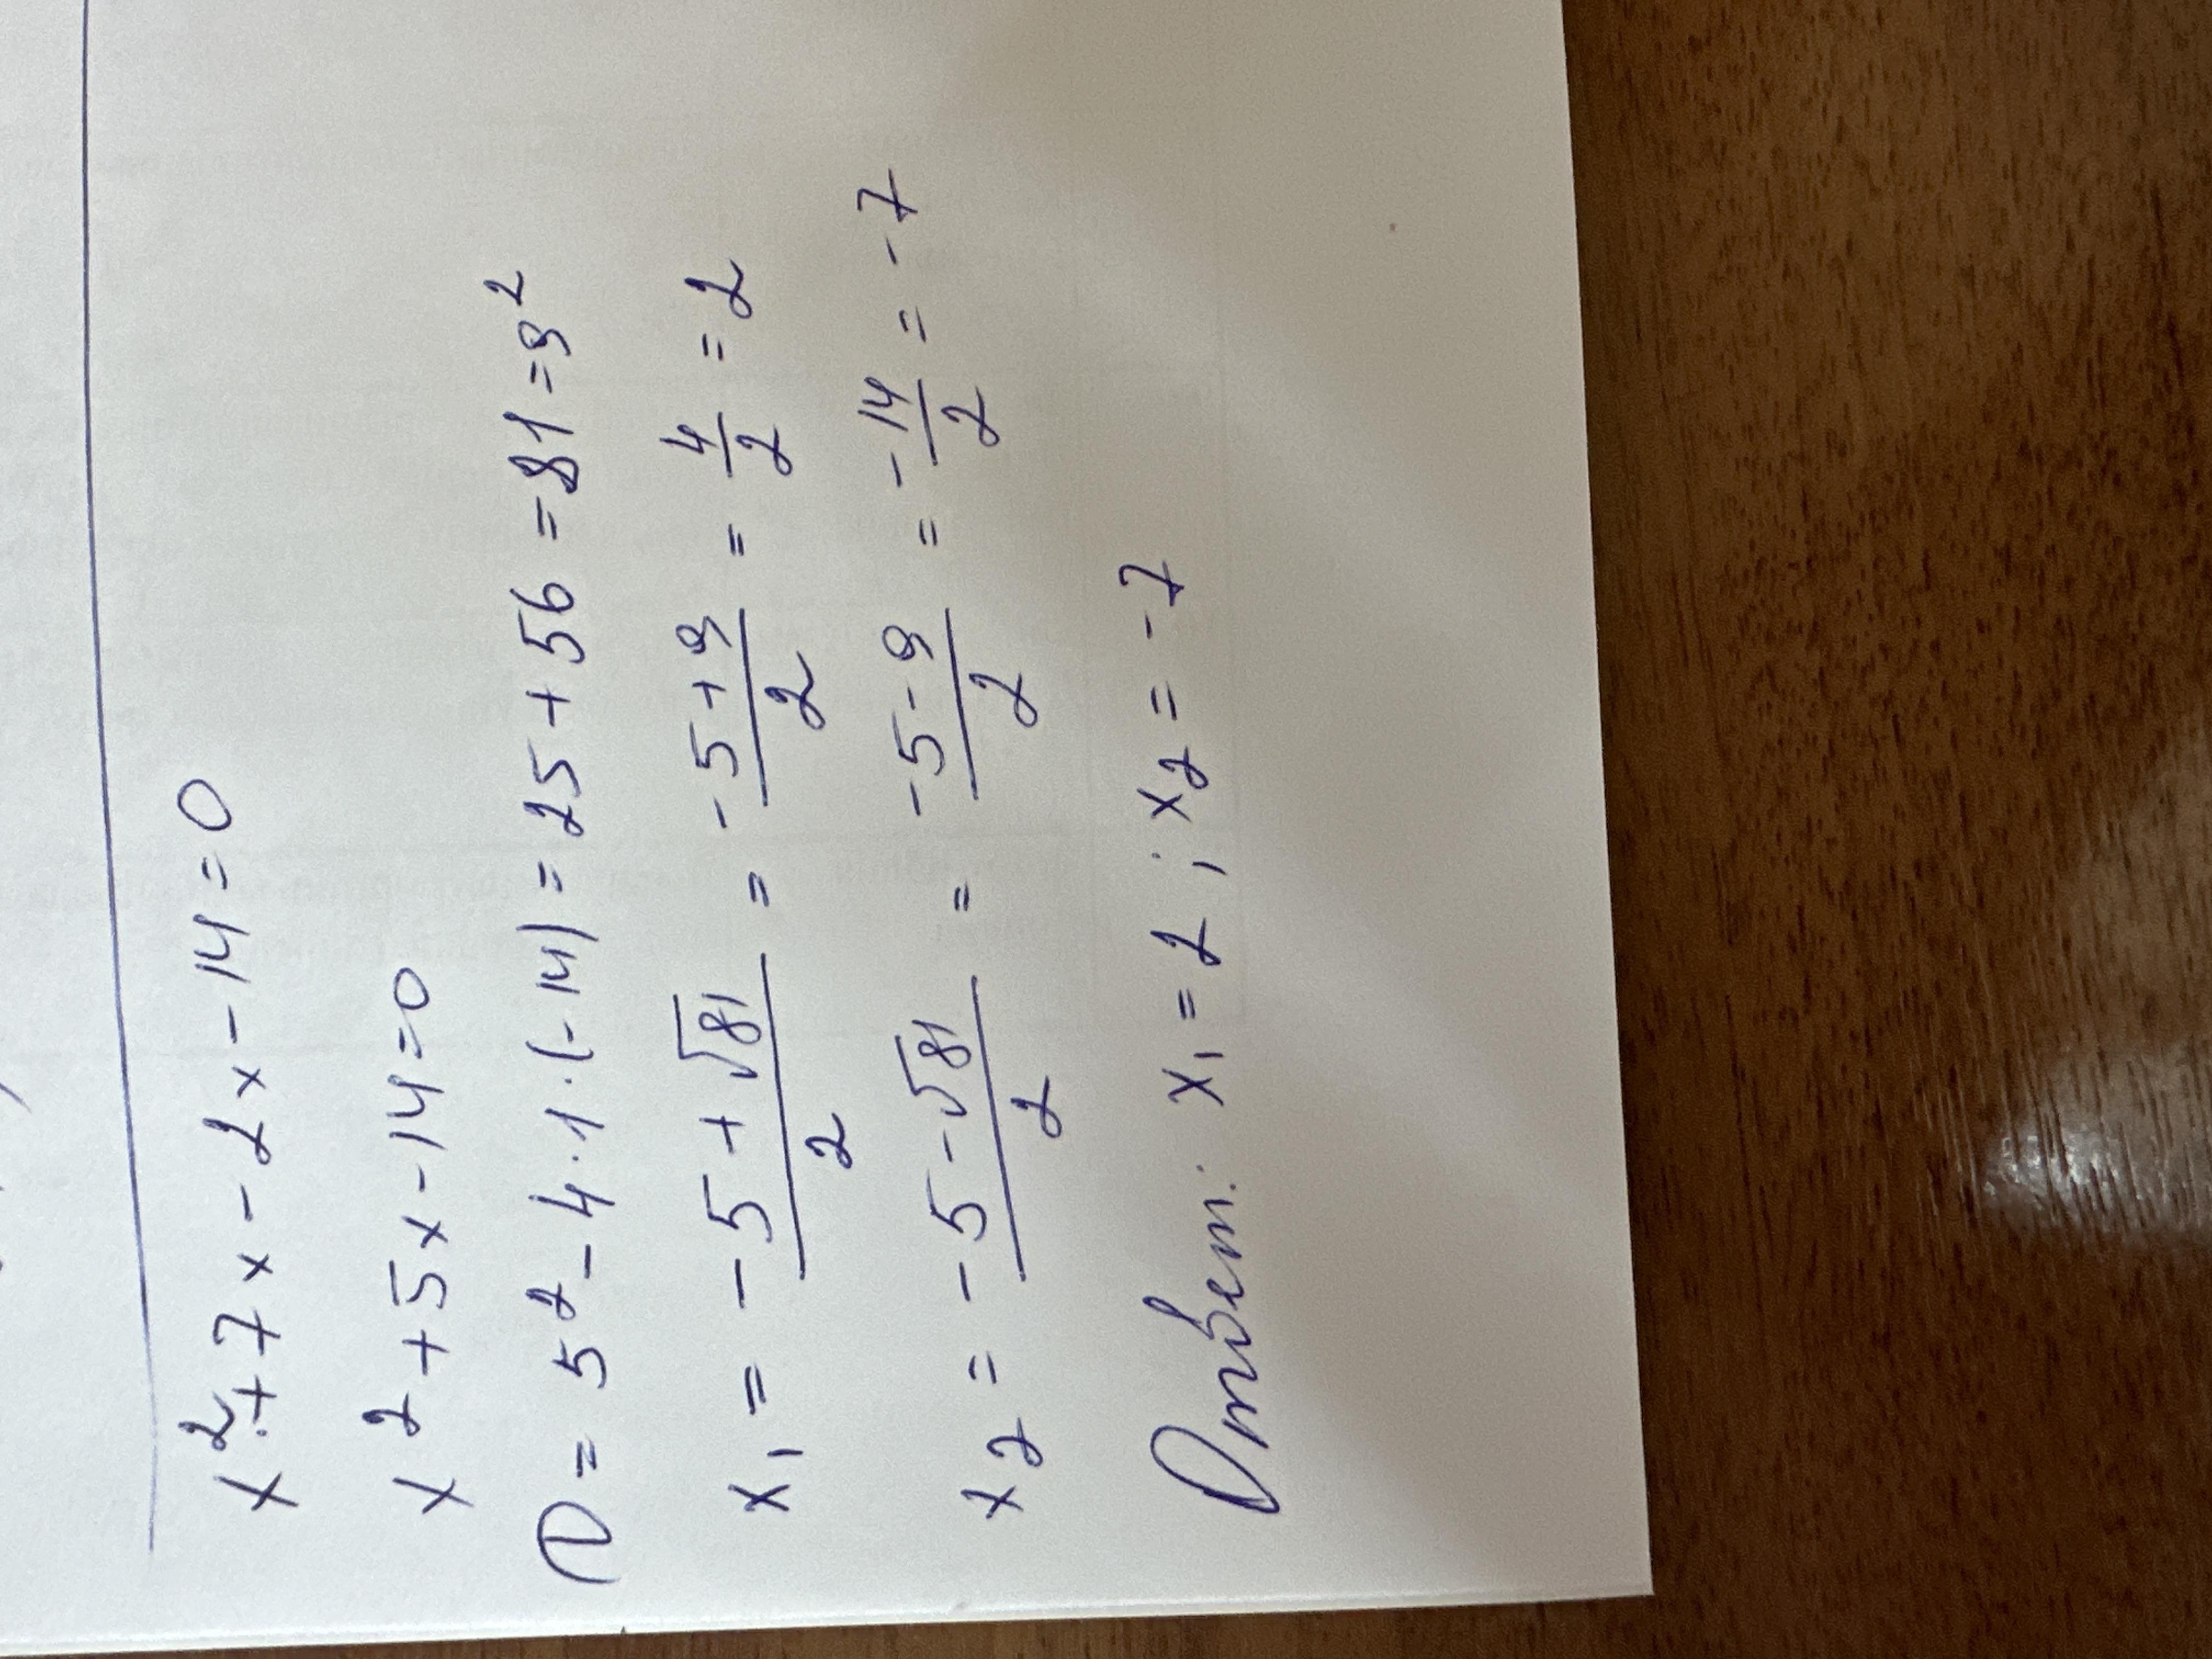 x²+7x-2x-14=0
x²+5x-14=0
D=5²-4·1·(-14)=25+56=81=9²
x₁ = (-5+√81)/2 = (-5+9)/2 = 4/2 = 2
x₂ = (-5-√81)/2 = (-5-9)/2 = -14/2 = -7
Ответ: x₁=2; x₂=-7